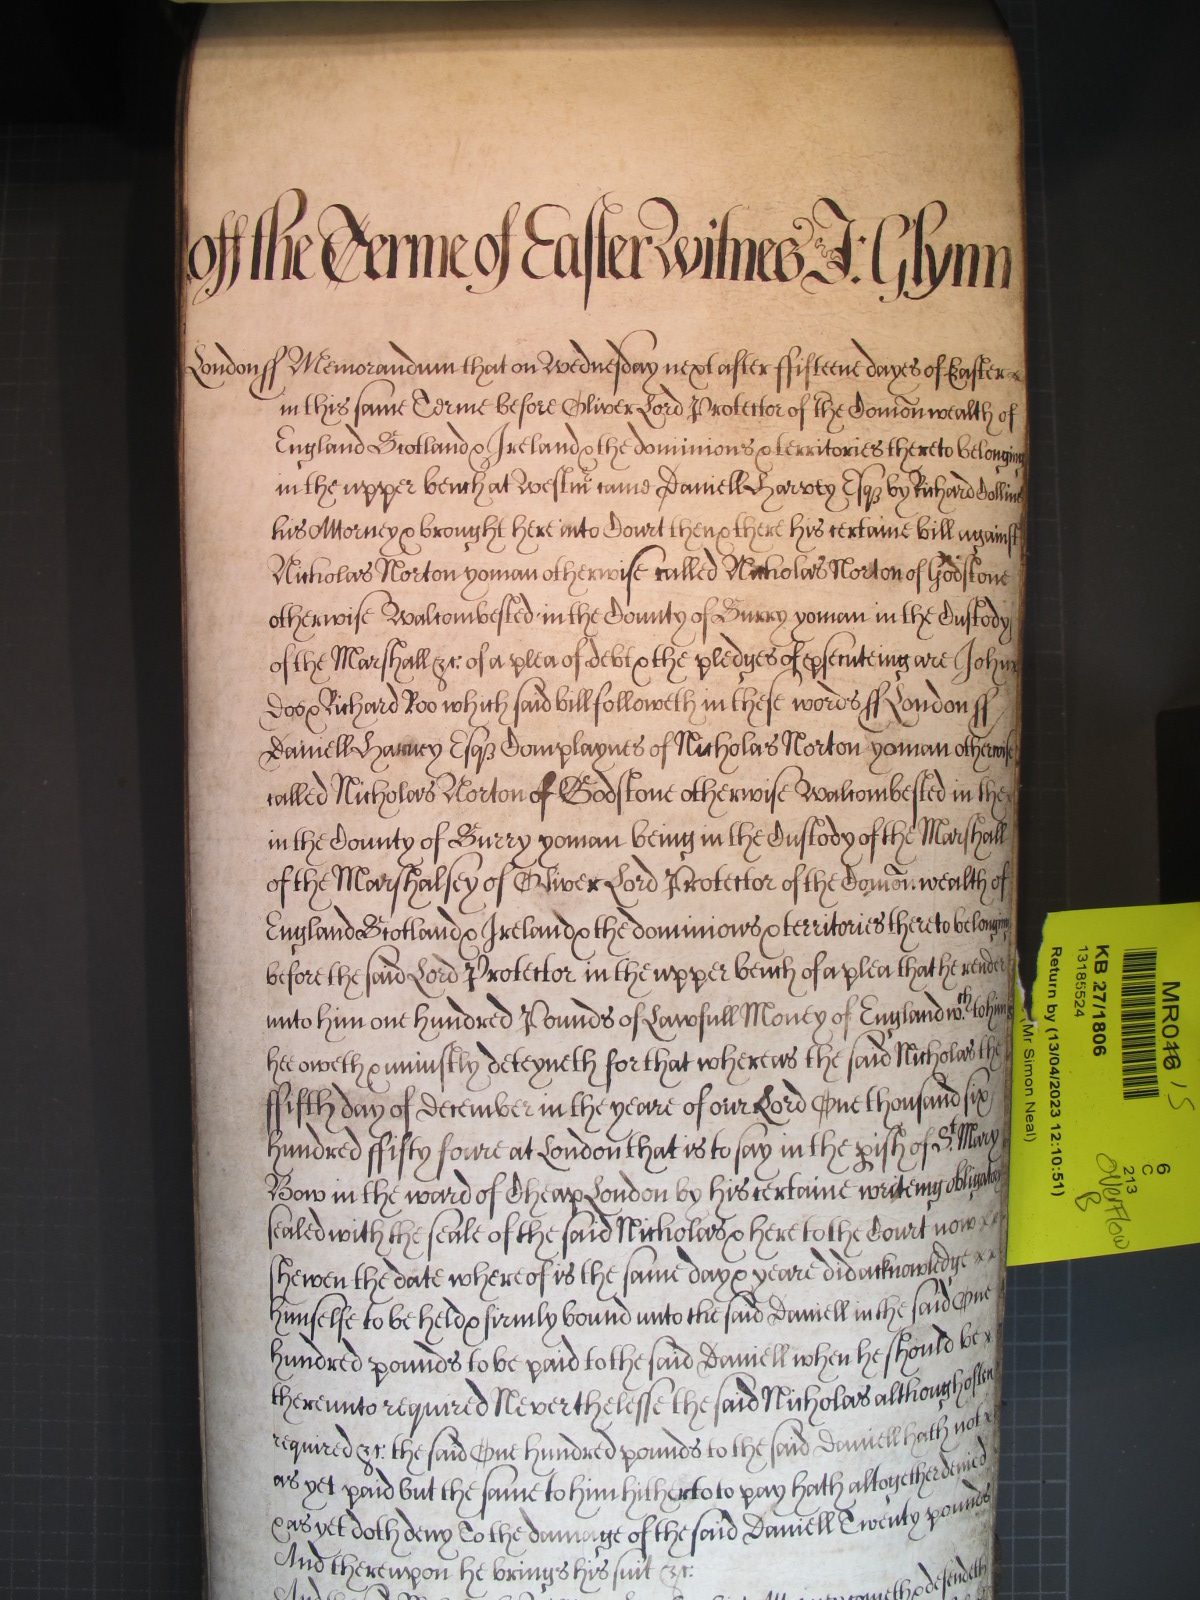 off the Terme of Easter Witnes J: Glynn
London ff Memorandum that on Wednesday next after ffifteene dayes of Easter
in this same Terme before Oliver Lord Protector of the Comonwealth of
England Scotland & Ireland & the dominions & territories thereto belonging
in the upper bench at Westmr came Daniell Harvey Esqz by Richard Collins
his Attorney & brought here into Court then & there his certaine bill against
Nicholas Norton yoman otherwise called Nicholas Norton of Godstone
otherwise Walcombested in the County of Surry yoman in the Custody
of the Marshall &c: of a plea of debt & the pledges of psecuteing are John
Doo & Richard Roo which said bill followeth in these words ff London ff
Daniell Harvey Esqz Complaynes of Nicholas Norton yoman otherwise
called Nicholas Norton of Godstone otherwise Walcombested in the
in the County of Surry yoman being in the Custody of the Marshall
of the Marshalsey of Oliver Lord Protector of the Comon wealth of
England Scotland & Ireland & the dominions & territories thereto belonging
before the said Lord Protector in the upper bench of a plea that he render
unto him one hundred Pounds of Lawfull Money of England wch to him
hee oweth & uniustly deteyneth for that whereas the said Nicholas the
ffifth day of December in the yeare of our Lord One thousand six
hundred ffifty foure at London that is to say in the pish of St Mary
Bow in the ward of Cheap London by his certaine writeing obligatory
sealed with the seale of the said Nicholas & here to the Court now
shewen the date whereof is the same day & yeare did acknowledge
himselfe to be held & firmly bound unto the said Daniell in the said One
hundred pounds to be paid to the said Daniell when he should be
thereunto required Neverthelesse the said Nicholas although often
required &c: the said One hundred pounds to the said Daniell hath not
as yet paid but the same to him hitherto to pay hath altogether denied
& as yet doth deny To the damage of the said Daniell Twenty pounds
And thereupon he brings his suit &c:
cometh & defendeth
MR046 / 5
KB 27/1806
13185524
Return by (13/04/2023 12:10:51)
(Mr Simon Neal)
6
C
213
Overflow
B